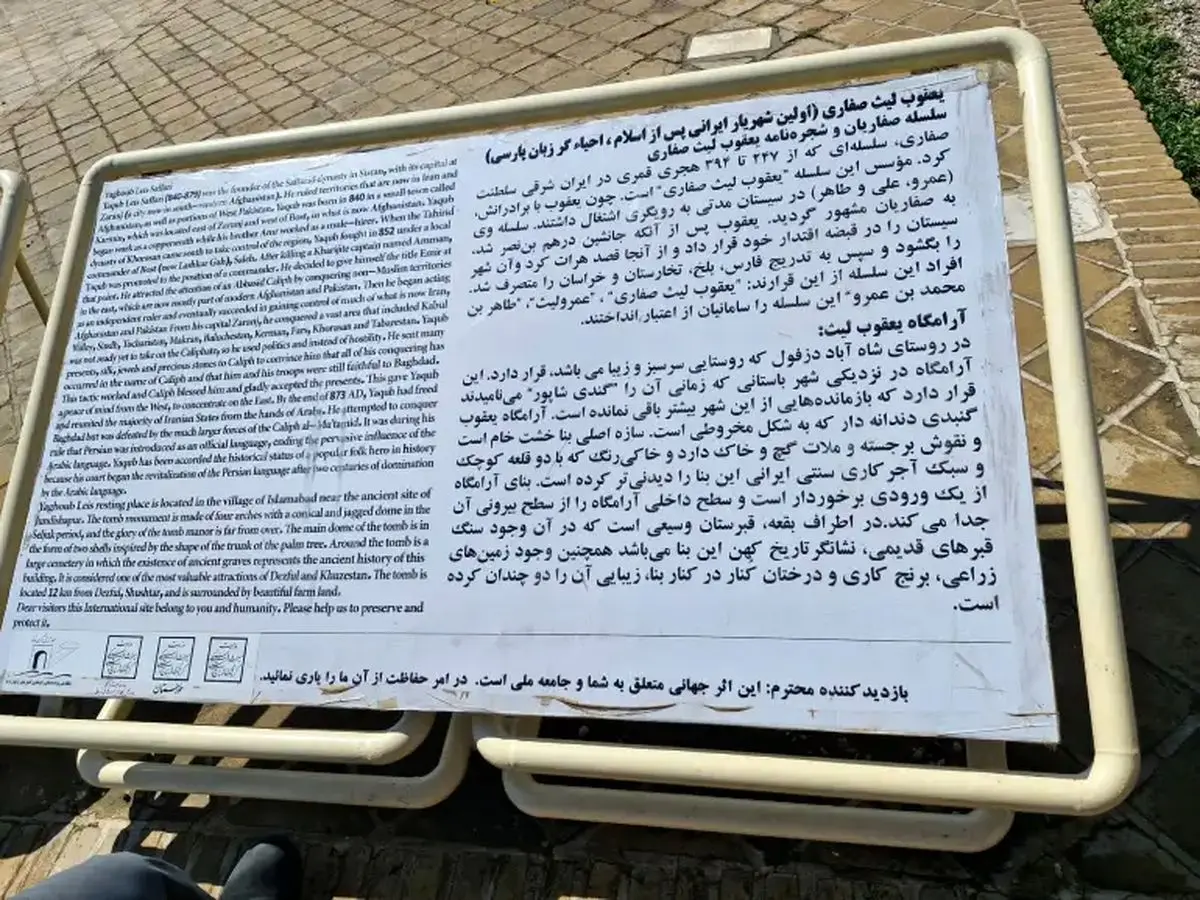 Yaghoub Leis Saffari
Yaqub Leis Saffari (840-879) was the founder of the Saffarid dynasty in Sistan, with its capital at
Zaranj (a city now in south-western Afghanistan). He ruled territories that are now in Iran and
Afghanistan, as well as portions of West Pakistan. Yaqub was born in 840 in a small town called
Karnin, which was located east of Zaranj and west of Bost, in what is now Afghanistan. Yaqub
began work as a coppersmith while his brother Amr worked as a mule-hirer. When the Tahirid
dynasty of Khorasan came south to take control of the region, Yaqub fought in 852 under a local
commander of Bost (now Lashkar Gah), Saleh. After killing a Kharijite captain named Amman,
Yaqub was promoted to the position of a commander. He decided to give himself the title Emir at
that point. He attracted the attention of an Abbasid Caliph by conquering non-Muslim territories
in the east, which are now mostly part of modern Afghanistan and Pakistan. Then he began acting
as an independent ruler and eventually succeeded in gaining control of much of what is now Iran,
Afghanistan and Pakistan From his capital Zaranj, he conquered a vast area that included Kabul
Valley, Sindh, Tocharistan, Makran, Baluchestan, Kerman, Fars, Khorasan and Tabarestan. Yaqub
was not ready yet to take on the Caliphate, so he used politics and instead of hostility. He sent many
presents, silk, jewels and precious stones to Caliph to convince him that all of his conquering has
occurred in the name of Caliph and that him and his troops were still faithful to Baghdad.
This tactic worked and Caliph blessed him and gladly accepted the presents. This gave Yaqub
a peace of mind from the West, to concentrate on the East. By the end of 873 AD, Yaqub had freed
and reunited the majority of Iranian States from the hands of Arabs. He attempted to conquer
Baghdad but was defeated by the much larger forces of the Caliph al-Mu'tamid. It was during his
rule that Persian was introduced as an official language, ending the pervasive influence of the
Arabic language. Yaqub has been accorded the historical status of a popular folk hero in history
because his court began the revitalization of the Persian language after two centuries of domination
by the Arabic language.
Yaghoub Leis resting place is located in the village of Islamabad near the ancient site of
Jundishapur. The tomb monument is made of four arches with a conical and jagged dome in the
Seljuk period, and the glory of the tomb manor is far from over. The main dome of the tomb is in
the form of two shells inspired by the shape of the trunk of the palm tree. Around the tomb is a
large cemetery in which the existence of ancient graves represents the ancient history of this
building. It is considered one of the most valuable attractions of Dezful and Khuzestan. The tomb is
located 12 km from Dezful, Shushtar, and is surrounded by beautiful farm land.
Dear visitors this International site belong to you and humanity. Please help us to preserve and
protect it.
یعقوب لیث صفاری (اولین شهریار ایرانی پس از اسلام ، احیاء گر زبان پارسی)
سلسله صفاریان و شجره‌نامه یعقوب لیث صفاری
صفاری، سلسله‌ای که از ۲۴۷ تا ۳۹۴ هجری قمری در ایران شرقی سلطنت
کرد. مؤسس این سلسله "یعقوب لیث صفاری" است. چون یعقوب با برادرانش،
(عمرو، علی و طاهر) در سیستان مدتی به رویگری اشتغال داشتند. سلسله وی
به صفاریان مشهور گردید. یعقوب پس از آنکه جانشین درهم بن‌نصر شد،
سیستان را در قبضه اقتدار خود قرار داد و از آنجا قصد هرات کرد وآن شهر
را بگشود و سپس به تدریج فارس، بلخ، تخارستان و خراسان را متصرف شد.
افراد این سلسله از این قرارند: "یعقوب لیث صفاری" ، "عمرولیث"، "طاهر بن
محمد بن عمرو" این سلسله را سامانیان از اعتبار انداختند.
آرامگاه یعقوب لیث:
در روستای شاه آباد دزفول که روستایی سرسبز و زیبا می باشد، قرار دارد. این
آرامگاه در نزدیکی شهر باستانی که زمانی آن را "گندی شاپور" می‌نامیدند
قرار دارد که بازمانده‌هایی از این شهر بیشتر باقی نمانده است. آرامگاه یعقوب
گنبدی دندانه دار که به شکل مخروطی است. سازه اصلی بنا خشت خام است
و نقوش برجسته و ملات گچ و خاک دارد و خاکی‌رنگ که با دو قلعه کوچک
و سبک آجر کاری سنتی ایرانی این بنا را دیدنی‌تر کرده است. بنای آرامگاه
از یک ورودی برخوردار است و سطح داخلی آرامگاه را از سطح بیرونی آن
جدا می کند.در اطراف بقعه، قبرستان وسیعی است که در آن وجود سنگ
قبرهای قدیمی، نشانگر تاریخ کهن این بنا می‌باشد همچنین وجود زمین‌های
زراعی، برنج کاری و درختان کُنار در کنار بنا، زیبایی آن را دو چندان کرده
است.
بازدیدکننده محترم: این اثر جهانی متعلق به شما و جامعه ملی است. در امر حفاظت از آن ما را یاری نمائید.
خوزستان